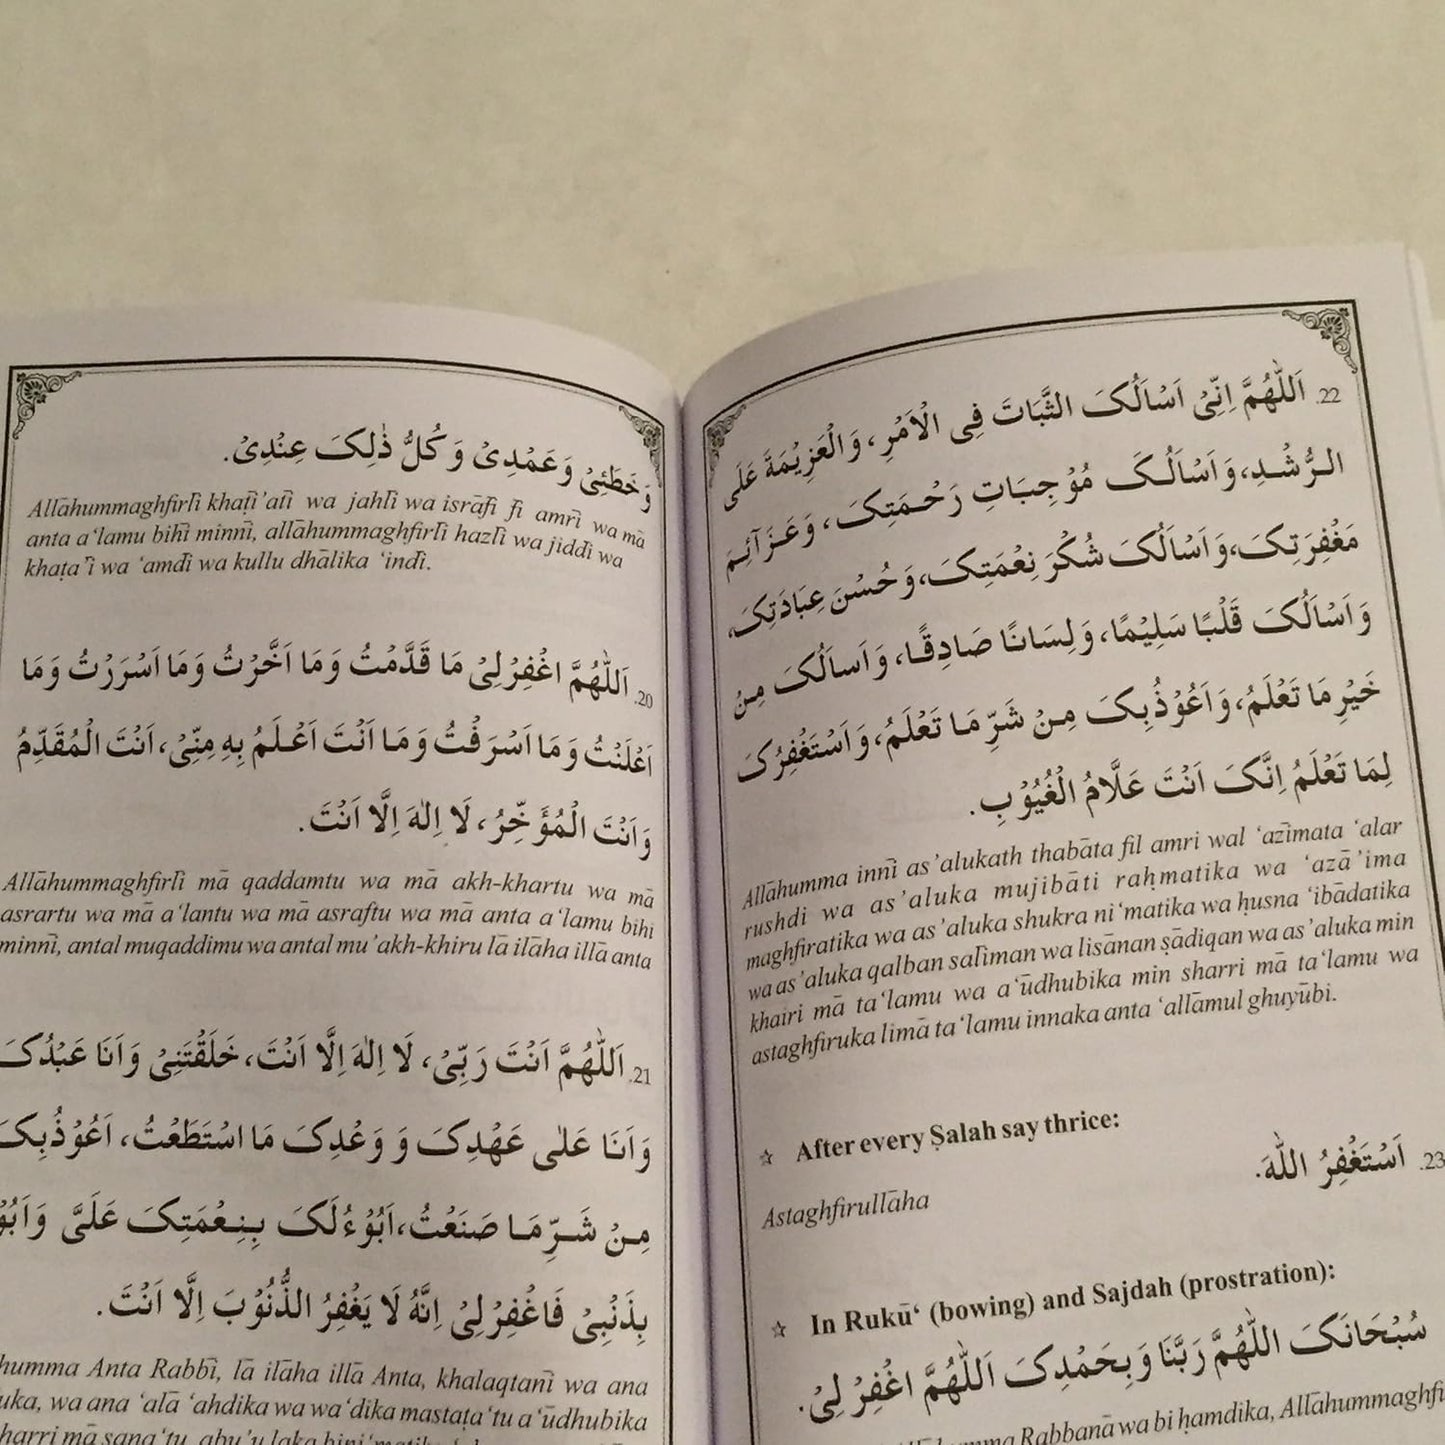 وَخَطَئِیْ وَعَمْدِیْ وَ کُلُّ ذٰلِکَ عِنْدِیْ.
Allāhummaghfirlī khaṭī’atī wa jahlī wa isrāfī fī amrī wa mā
anta a‘lamu bihī minnī, allāhummaghfirlī hazlī wa jiddī wa
khaṭa’ī wa ‘amdī wa kullu dhālika ‘indī.
20. اَللّٰهُمَّ اغْفِرْلِیْ مَا قَدَّمْتُ وَمَا اَخَّرْتُ وَمَا اَسْرَرْتُ وَمَا
اَعْلَنْتُ وَمَا اَسْرَفْتُ وَمَا اَنْتَ اَعْلَمُ بِهِ مِنِّیْ، اَنْتَ الْمُقَدِّمُ
وَاَنْتَ الْمُؤَخِّرُ، لَا اِلٰهَ اِلَّا اَنْتَ.
Allāhummaghfirlī mā qaddamtu wa mā akh-khartu wa mā
asrartu wa mā a‘lantu wa mā asraftu wa mā anta a‘lamu bihi
minnī, antal muqaddimu wa antal mu’akh-khiru lā ilāha illā anta
21. اَللّٰهُمَّ اَنْتَ رَبِّیْ، لَا اِلٰهَ اِلَّا اَنْتَ، خَلَقْتَنِیْ وَاَنَا عَبْدُکَ
وَاَنَا عَلٰی عَهْدِکَ وَ وَعْدِکَ مَا اسْتَطَعْتُ، اَعُوْذُبِکَ
مِنْ شَرِّ مَا صَنَعْتُ، اَبُوْءُلَکَ بِنِعْمَتِکَ عَلَیَّ
بِذَنْبِیْ فَاغْفِرْلِیْ اِنَّهُ لَا یَغْفِرُ الذُّنُوْبَ اِلَّا اَنْتَ.
humma Anta Rabbī, lā ilāha illā Anta, khalaqtanī wa ana
uka, wa ana ‘alā ‘ahdika wa wa‘dika mastaṭa‘tu a‘ūdhubika
harri mā sana‘tu, abu’u laka
22. اَللّٰهُمَّ اِنِّیْ اَسْاَلُکَ الثَّبَاتَ فِی الْاَمْرِ، وَالْعَزِیْمَةَ عَلَی
الرُّشْدِ، وَاَسْاَلُکَ مُوْجِبَاتِ رَحْمَتِکَ، وَعَزَآئِمَ
مَغْفِرَتِکَ، وَاَسْاَلُکَ شُکْرَ نِعْمَتِکَ، وَحُسْنَ عِبَادَتِکَ،
وَاَسْاَلُکَ قَلْبًا سَلِیْمًا، وَلِسَانًا صَادِقًا، وَاَسالُکَ مِنْ
خَیْرِ مَا تَعْلَمُ، وَاَعُوْذُبِکَ مِنْ شَرِّ مَا تَعْلَمُ، وَاَسْتَغْفِرُکَ
لِمَا تَعْلَمُ اِنَّکَ اَنْتَ عَلَّامُ الْغُیُوْبِ.
Allāhumma innī as’alukath thabāta fil amri wal ‘azīmata ‘alar
rushdi wa as’aluka mujibāti raḥmatika wa ‘azā’ima
maghfiratika wa as’aluka shukra ni‘matika wa ḥusna ‘ibādatika
wa as’aluka qalban salīman wa lisānan ṣādiqan wa as’aluka min
khairi mā ta‘lamu wa a‘ūdhubika min sharri mā ta‘lamu wa
astaghfiruka limā ta‘lamu innaka anta ‘allāmul ghuyūbi.
☆ After every Ṣalah say thrice:
23. اَسْتَغْفِرُ اللّٰهَ.
Astaghfirullāha
☆ In Rukū‘ (bowing) and Sajdah (prostration):
سُبْحَانَکَ اللّٰهُمَّ رَبَّنَا وَبِحَمْدِکَ اَللّٰهُمَّ اغْفِرْ لِیْ.
Rabbanā wa bi ḥamdika, Allāhummaghfi